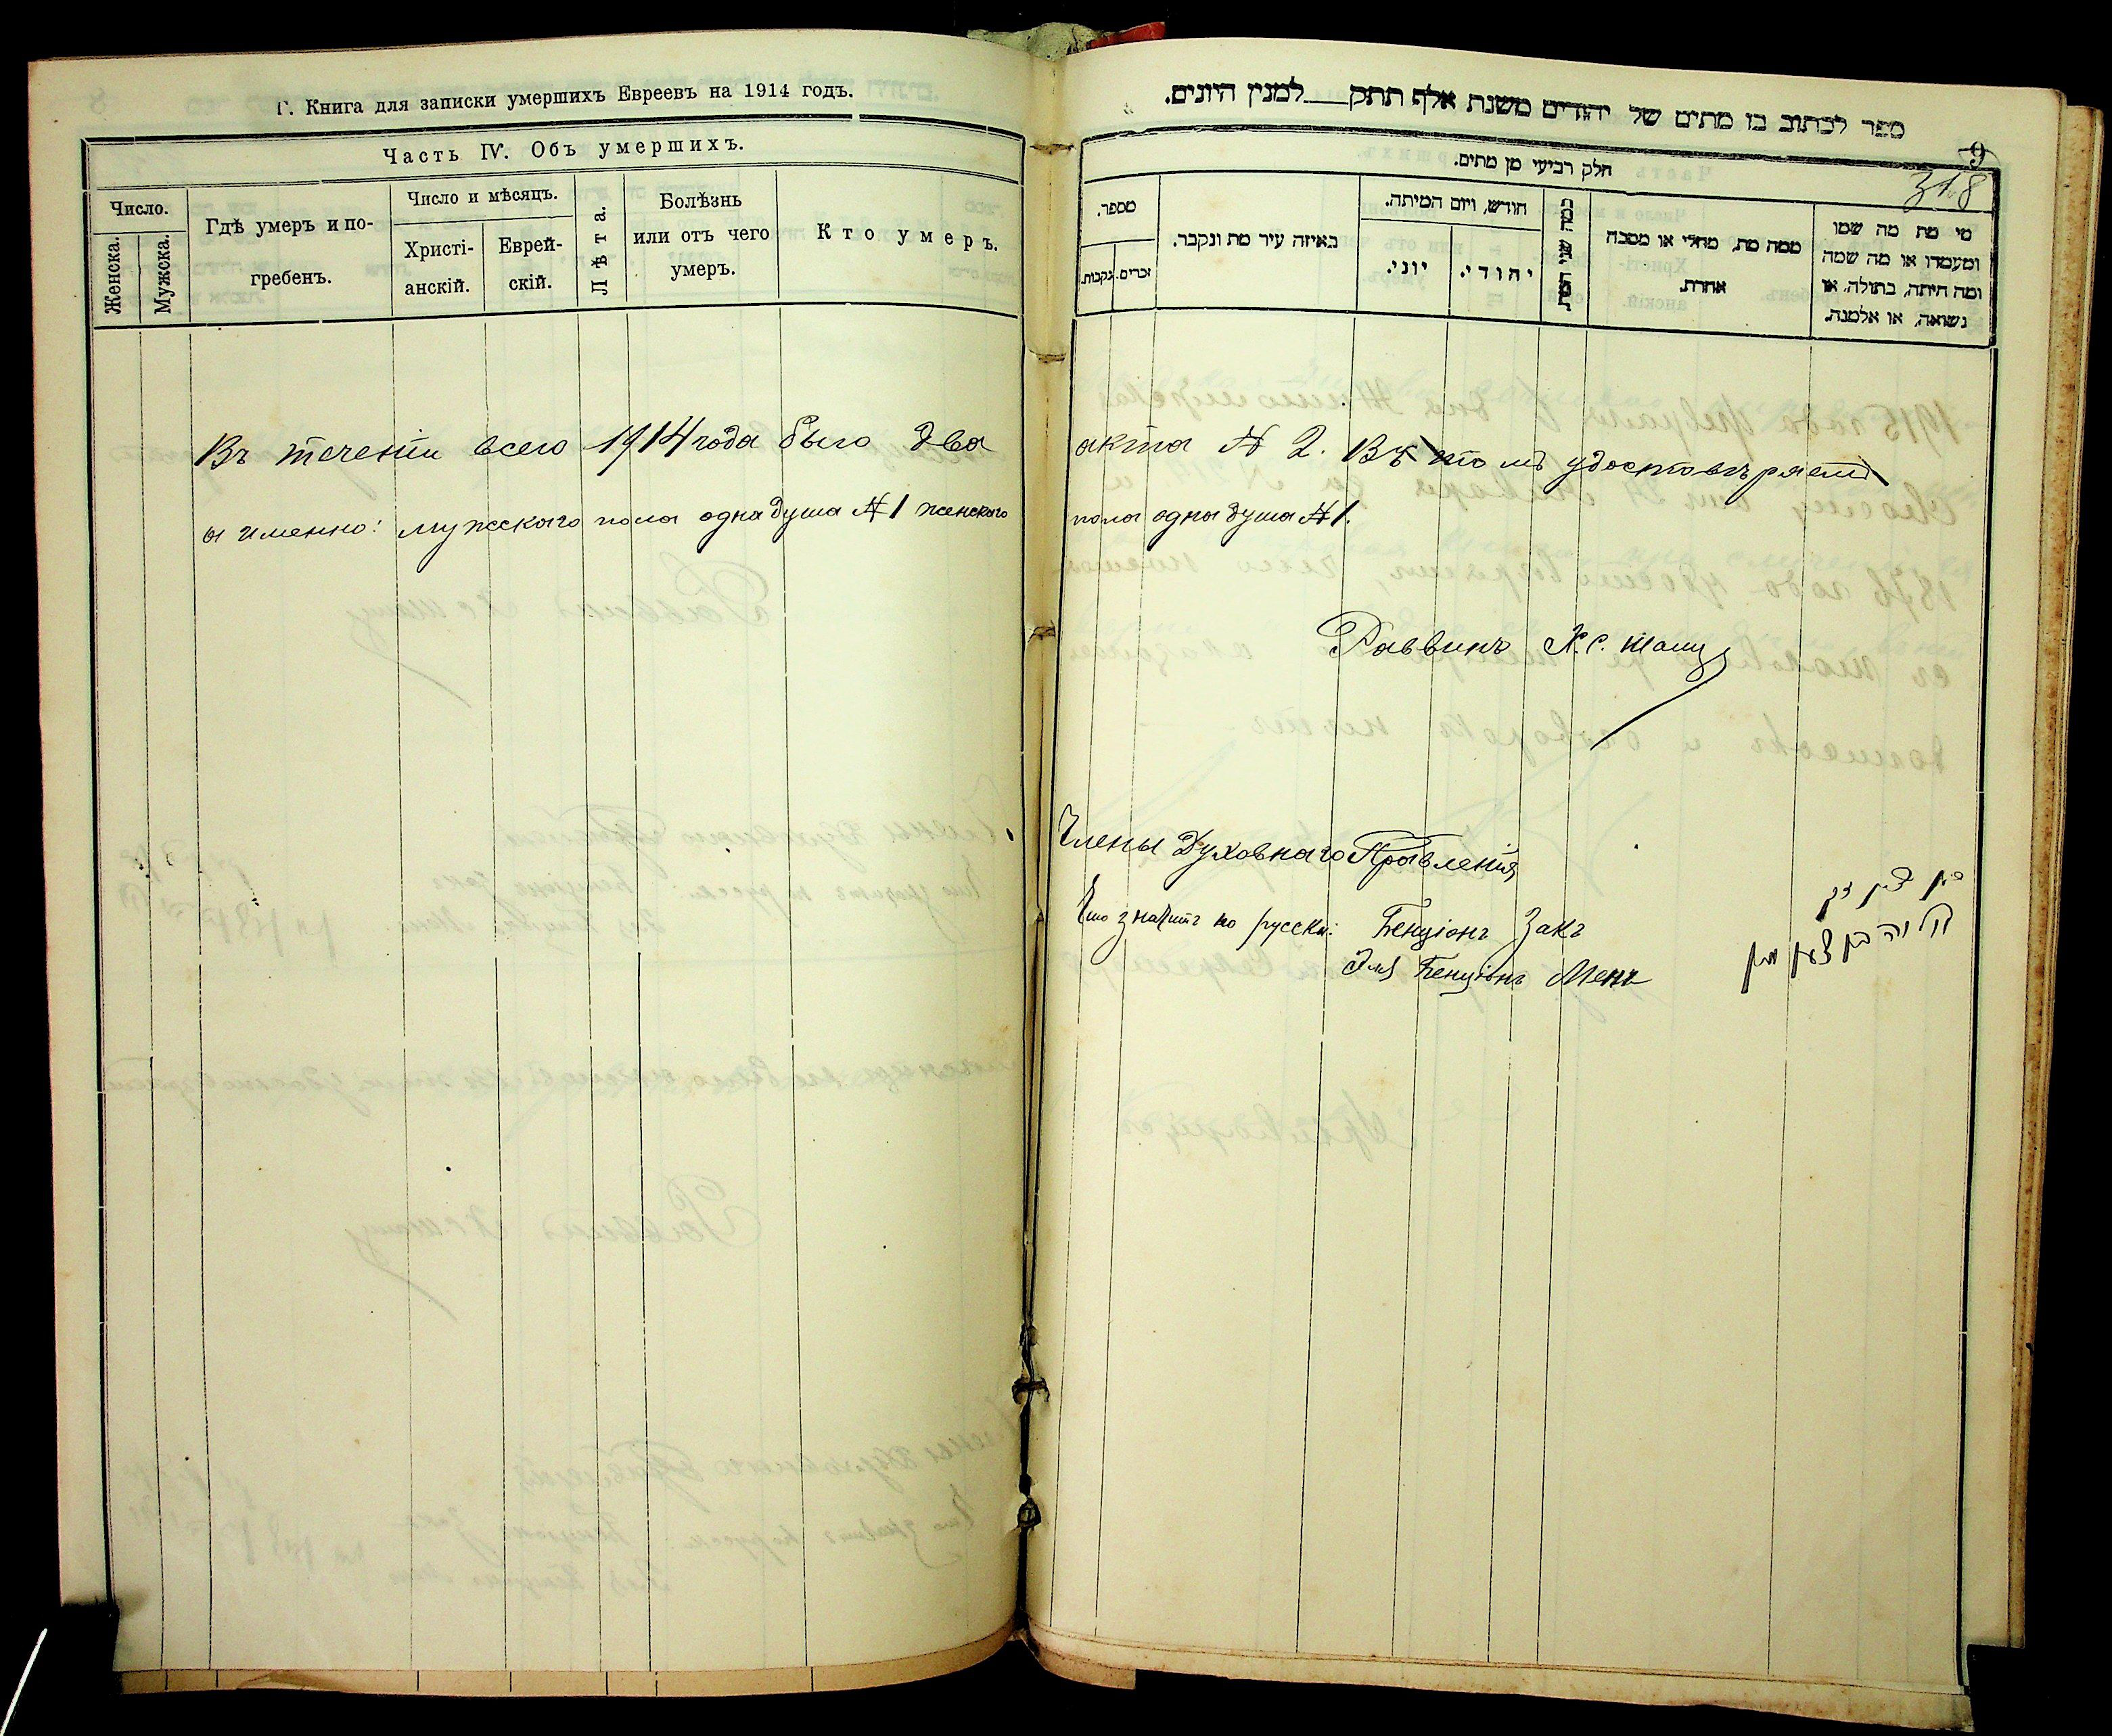 Г. Книга для записки умершихъ Евреевъ на 1914 годъ.
Часть IV. Объ умершихъ.
Число.
Женска.
Мужска.
Гдѣ умеръ и по-
гребенъ.
Число и мѣсяцъ.
Христі-
анскій.
Еврей-
скій.
Лѣта.
Болѣзнь
или отъ чего
умеръ.
Кто умеръ.
ספר לכתוב בו מתים של יהודים משנת אלף תתק למנין היונים.
9
318
חלק רביעי מן מתים.
מספר.
זכרים.
נקבות.
באיזה עיר מת ונקבר.
חודש, ויום המיתה.
יוני.
יהודי.
כמה שני המת
ממה מת, מחלי או מסבה
אחרת.
מי מת מה שמו
ומעמדו או מה שמה
ומה היתה, בתולה, או
נשואה, או אלמנה.
Въ теченіи всего 1914 года было два акта № 2. Въ томъ удостовѣряемъ
а именно: мужскаго пола одна душа № 1 женскаго пола одна душа № 1.
Раввинъ Х. С.
Члены Духовнаго Правленія
Что значитъ по русски: Бенціонъ Закъ
Бенціонъ Менъ
בן ציון זק
בן ציון מן